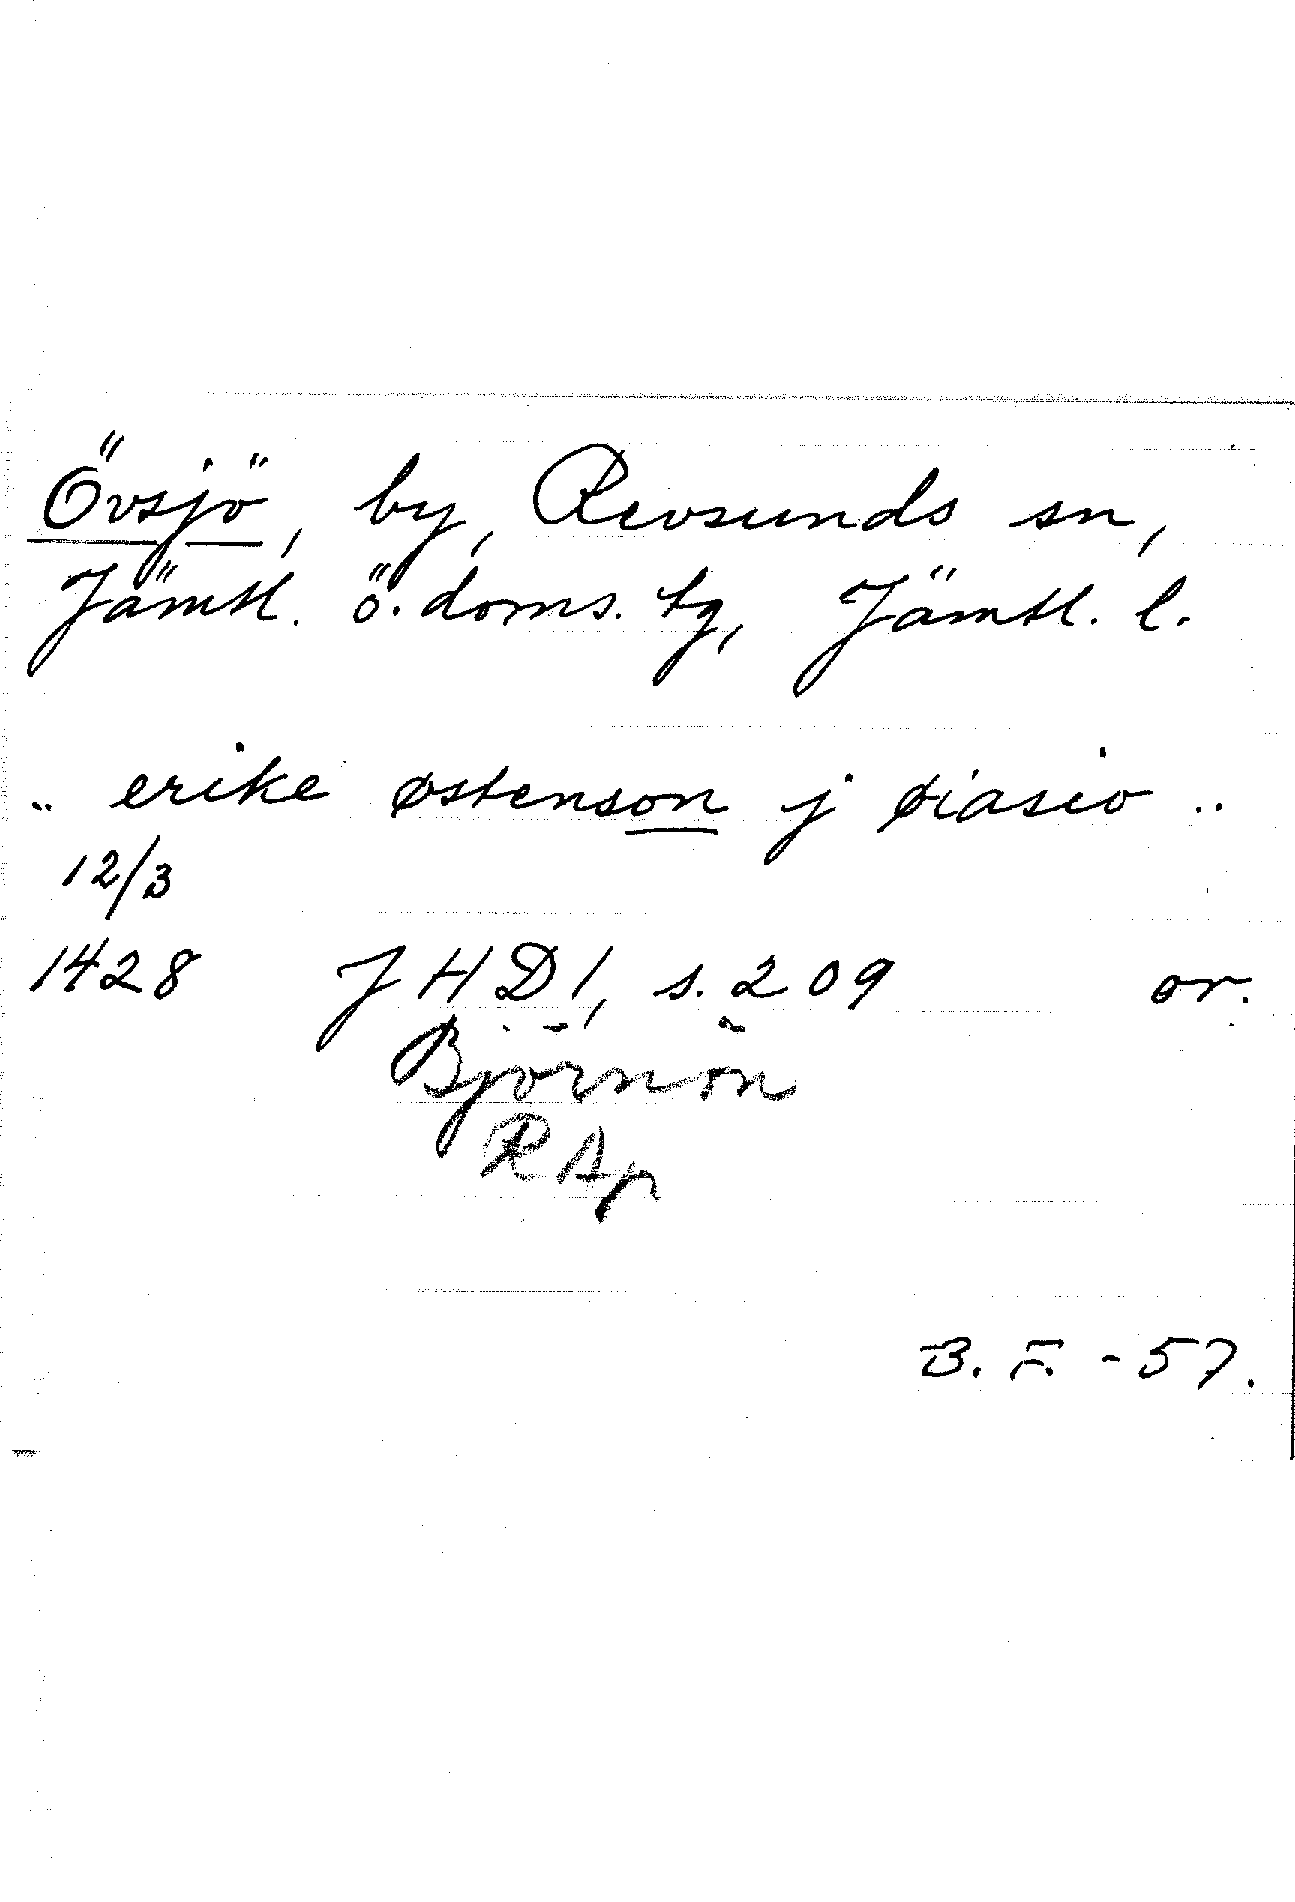 Övsjö, by, Revsunds sn,
Jämtl. ö. doms. tg, Jämtl. l.
.. erike østenson j øiasio ..
12/3
1428 JHD 1, s. 209 or.
Björnön
RAp
B. F. - 57.